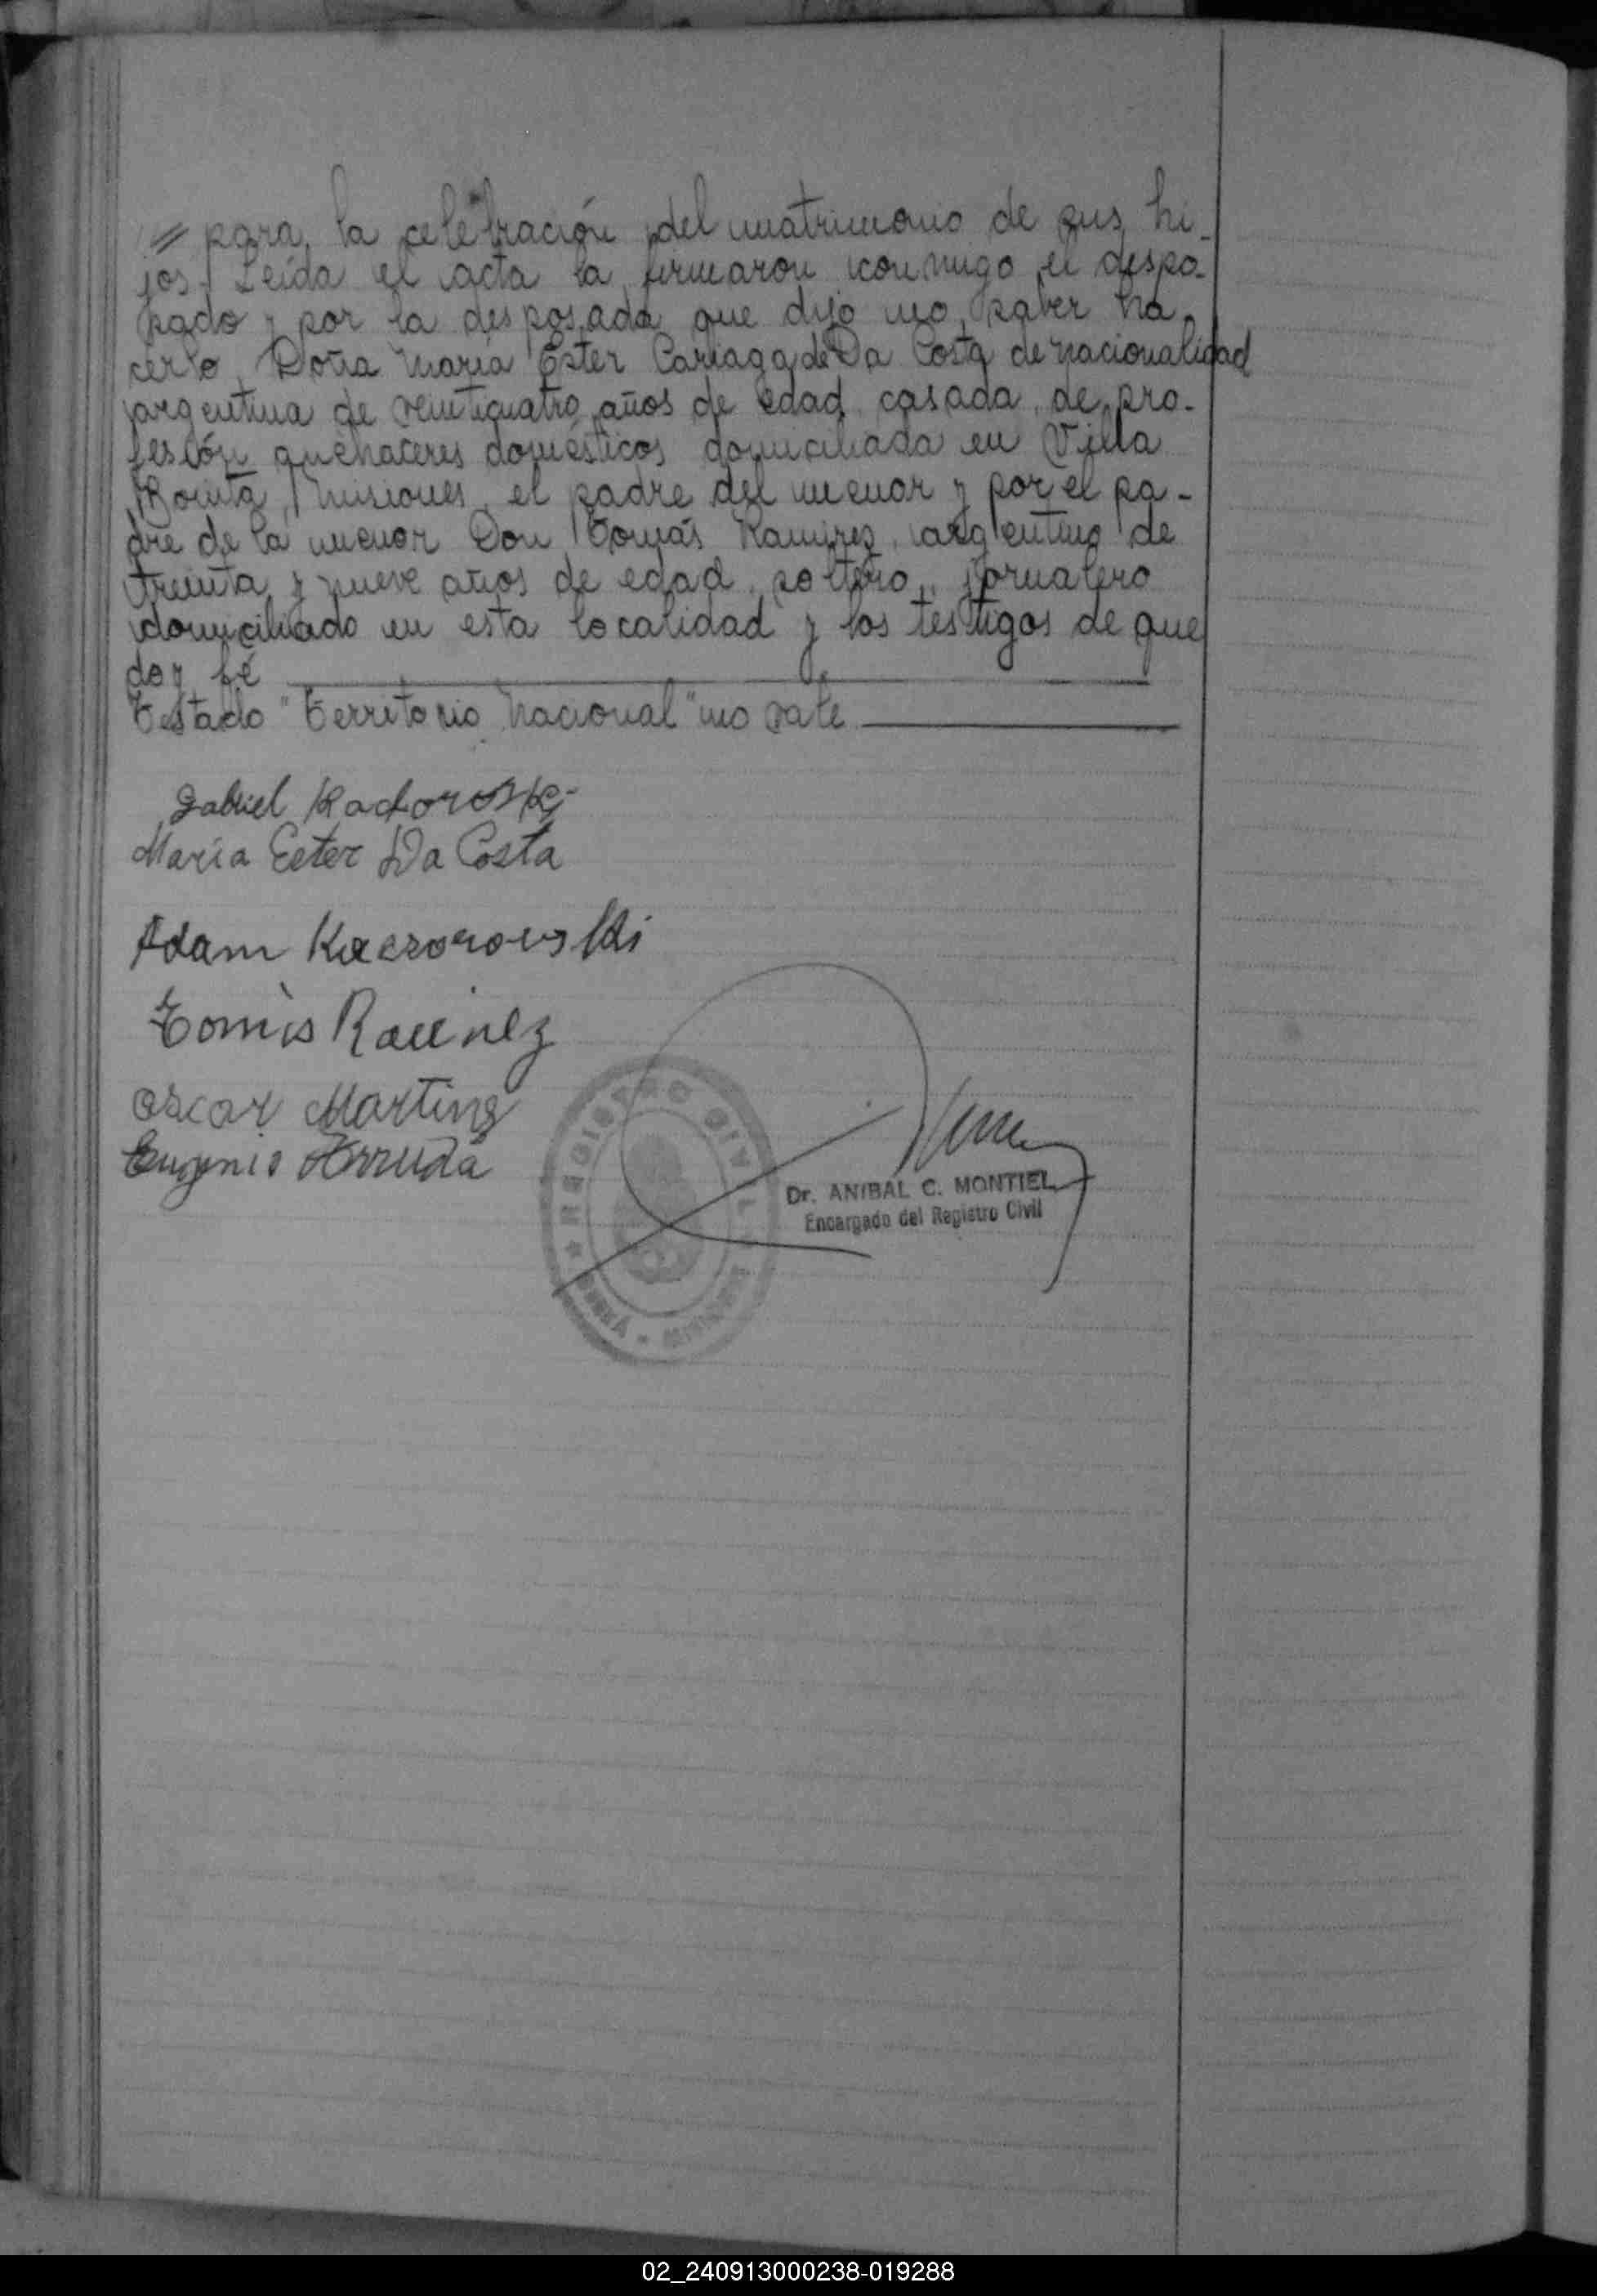 // para la celebración del matrimonio de sus hi-
jos. Leída el acta la firmaron conmigo el despo-
sado y por la desposada que dijo no saber ha-
cerlo Doña María Ester Cariaga de Da Costa de nacionalidad
argentina de veinticuatro años de edad, casada, de pro-
fesión quehaceres domésticos domiciliada en Villa
Bonita, Misiones, el padre del menor y por el pa-
dre de la menor Don Tomás Ramirez, argentino de
treinta y nueve años de edad, soltero, jornalero
domiciliado en esta localidad y los testigos de que
doy fé
Testado "Territorio Nacional" no vale
Gabriel
María Ester Da Costa
Adam
Tomás Ramirez
Oscar Martins
Eugenio Arruda
REGISTRO CIVIL
MISIONES
Dr. ANIBAL C. MONTIEL
Encargado del Registro Civil
02_240913000238-019288